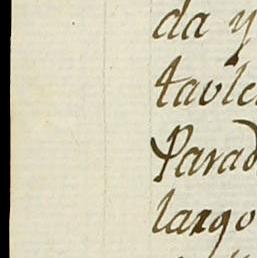 da y
tavle
Parad
largo